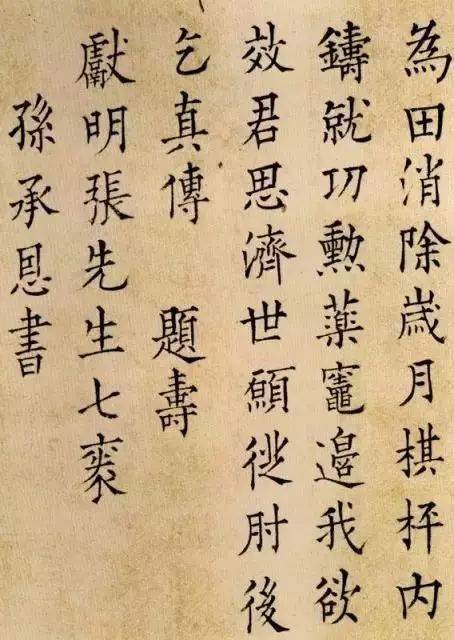 為田消除歲月棋枰内
鑄就功勲藥竈邉我欲
效君思濟世願從肘後
乞真傳　題壽
獻明張先生七袠
孫承恩書